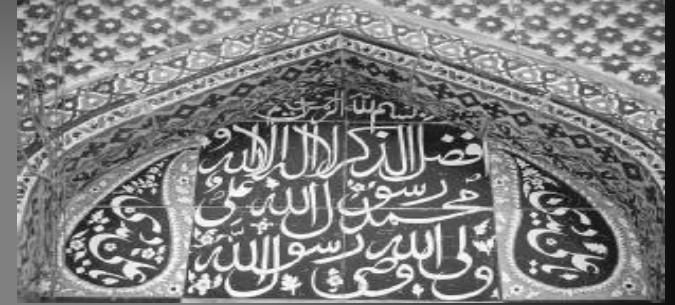 بسم الله الرحمن
فضل الذکر لا اله الا الله
محمد رسول الله علی
ولی الله وصی رسول الله